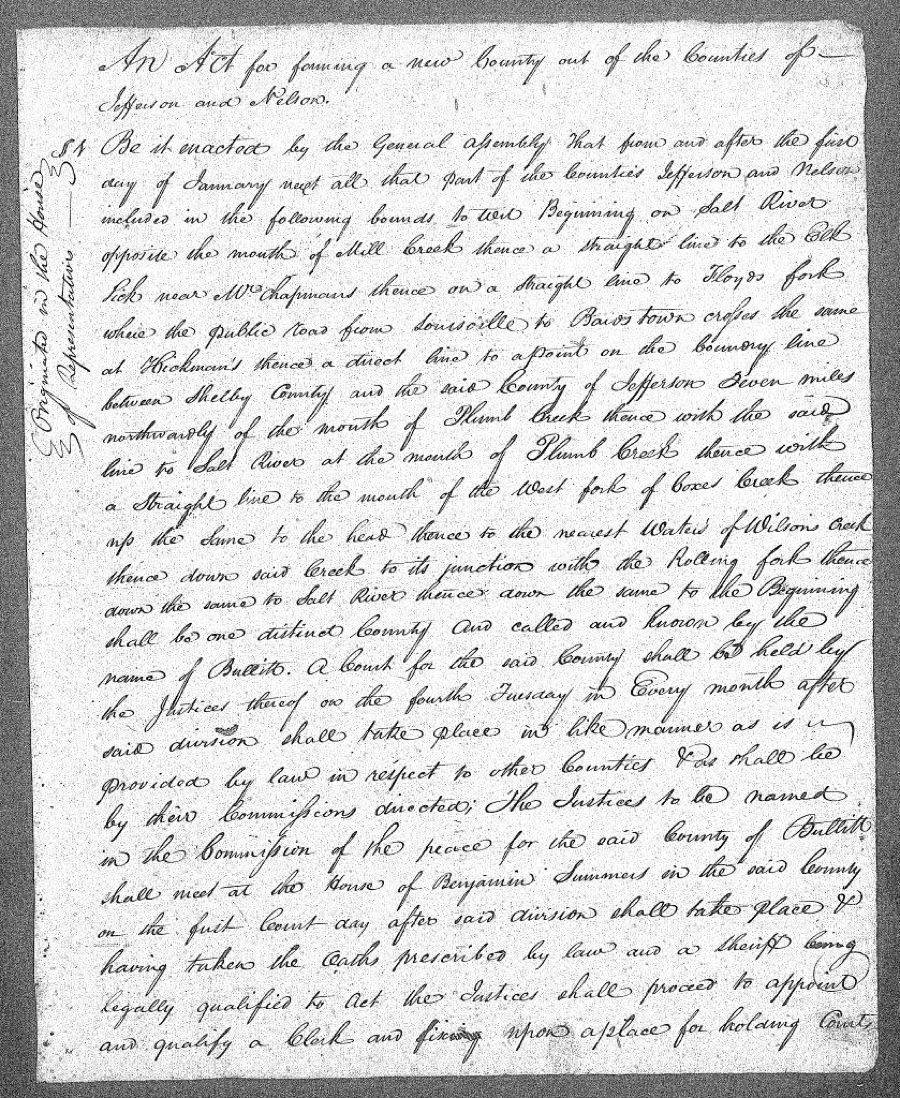 An Act for forming a new County out of the Counties of
Jefferson and Nelson.
§ 1 Be it enacted by the General assembly that from and after the first
day of January next all that part of the Counties Jefferson and Nelson
included in the following bounds to wit Beginning on Salt River
opposite the mouth of Mill Creek thence a straight line to the Elk
Lick near Mrs Chapmans thence on a straight line to Floyds fork
where the public road from Louisville to Bairdstown crosses the same
at Hickman's thence a direct line to a point on the boundry line
between Shelby County and the said County of Jefferson Seven miles
northwardly of the mouth of Plumb Creek thence with the said
line to Salt River at the mouth of Plumb Creek thence with
a Straight line to the mouth of the West fork of Coxes Creek thence
up the same to the head thence to the nearest Waters of Wilsons Creek
thence down said Creek to its junction with the Rolling fork thence
down the same to Salt River thence down the same to the Beginning
shall be one distinct County and called and known by the
name of Bullitt. A Court for the said County shall be held by
the Justices thereof on the fourth Tuesday in Every month after
said division shall take place in like manner as is
provided by law in respect to other Counties & as shall be
by their Commissions directed; The Justices to be named
in the Commission of the peace for the said County of Bullitt
shall meet at the House of Benjamin Summers in the said County
on the first Court day after said division shall take place &
having taken the oaths prescribed by law and a sheriff being
legally qualified to act the Justices shall proceed to appoint
and qualify a Clerk and fixing upon a place for holding Courts
Originated in the House
of Representatives